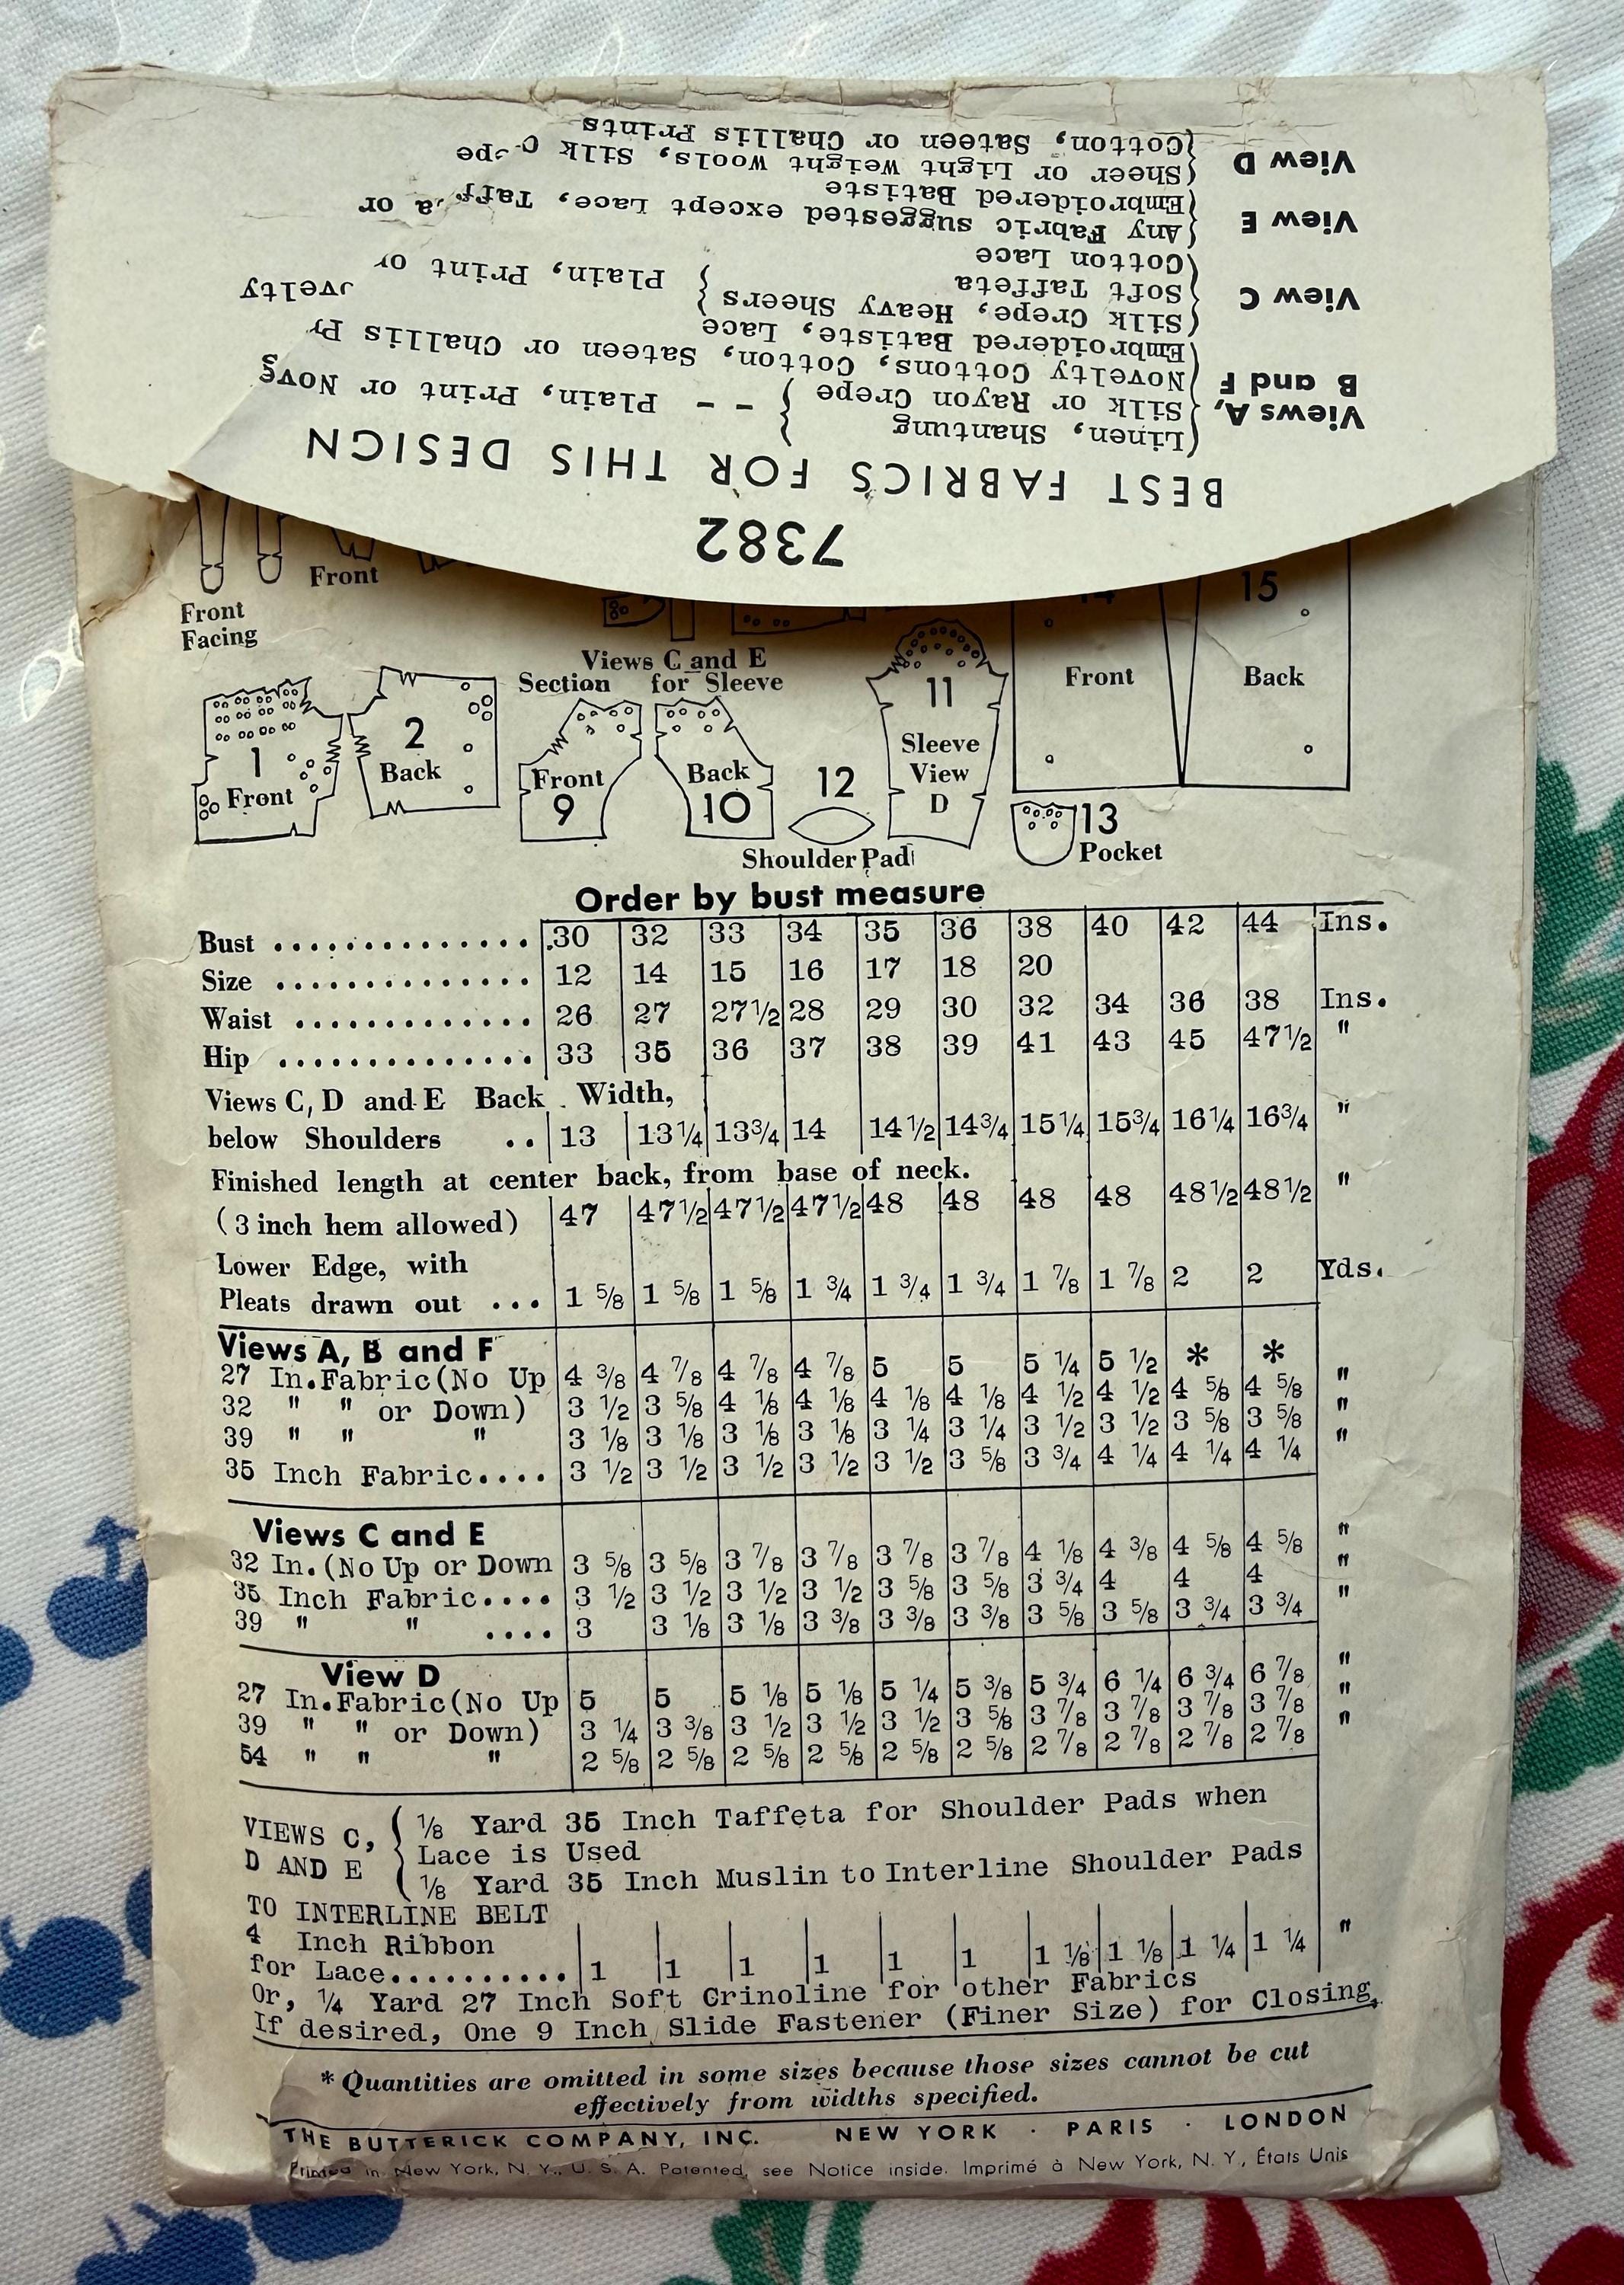 7382
BEST FABRICS FOR THIS DESIGN
Views A, B and F
Linen, Shantung
Silk or Rayon Crepe - - Plain, Print or
Novelty Cottons, Cotton, Sateen or Challis
Embroidered Batiste, Lace
View C
Silk Crepe, Heavy Sheers
Soft Taffeta Plain, Print or
Cotton Lace
View E
Any Fabric suggested except Lace, or
Embroidered Batiste
View D
Sheer or Light Weight Wools, Silk
Cotton, Sateen or Challis Prints
Front
Front Facing
Views C and E
Section for Sleeve
1 Front
2 Back
Front 9
Back 10
11 Sleeve View D
12 Shoulder Pad
13 Pocket
Front
15 Back
Order by bust measure
Bust .............. 30 32 33 34 35 36 38 40 42 44 Ins.
Size .............. 12 14 15 16 17 18 20
Waist ............. 26 27 27½ 28 29 30 32 34 36 38 Ins.
Hip .............. 33 35 36 37 38 39 41 43 45 47½ "
Views C, D and E Back Width,
below Shoulders .. 13 13¼ 13¾ 14 14½ 14¾ 15¼ 15¾ 16¼ 16¾ "
Finished length at center back, from base of neck.
(3 inch hem allowed) 47 47½ 47½ 47½ 48 48 48 48 48½ 48½ "
Lower Edge, with
Pleats drawn out ... 1 ⅝ 1 ⅝ 1 ⅝ 1 ¾ 1 ¾ 1 ¾ 1 ⅞ 1 ⅞ 2 2 Yds.
Views A, B and F
27 In. Fabric (No Up 4 ⅜ 4 ⅞ 4 ⅞ 4 ⅞ 5 5 5 ¼ 5 ½ * * "
32 " " or Down) 3 ½ 3 ⅝ 4 ⅛ 4 ⅛ 4 ⅛ 4 ⅛ 4 ½ 4 ½ 4 ⅝ 4 ⅝ "
39 " " " 3 ⅛ 3 ⅛ 3 ⅛ 3 ⅛ 3 ¼ 3 ¼ 3 ½ 3 ½ 3 ⅝ 3 ⅝ "
35 Inch Fabric.... 3 ½ 3 ½ 3 ½ 3 ½ 3 ½ 3 ⅝ 3 ¾ 4 ¼ 4 ¼ 4 ¼
Views C and E
32 In. (No Up or Down 3 ⅝ 3 ⅝ 3 ⅞ 3 ⅞ 3 ⅞ 3 ⅞ 4 ⅛ 4 ⅜ 4 ⅝ 4 ⅝ "
35 Inch Fabric.... 3 ½ 3 ½ 3 ½ 3 ½ 3 ⅝ 3 ⅝ 3 ¾ 4 4 4 "
39 " " .... 3 3 ⅛ 3 ⅛ 3 ⅜ 3 ⅜ 3 ⅜ 3 ⅝ 3 ⅝ 3 ¾ 3 ¾ "
View D
27 In. Fabric (No Up 5 5 5 ⅛ 5 ⅛ 5 ¼ 5 ⅜ 5 ¾ 6 ¼ 6 ¾ 6 ⅞ "
39 " " or Down) 3 ¼ 3 ⅜ 3 ½ 3 ½ 3 ½ 3 ⅝ 3 ⅞ 3 ⅞ 3 ⅞ 3 ⅞ "
54 " " " 2 ⅝ 2 ⅝ 2 ⅝ 2 ⅝ 2 ⅝ 2 ⅝ 2 ⅞ 2 ⅞ 2 ⅞ 2 ⅞ "
VIEWS C, D AND E
⅛ Yard 35 Inch Taffeta for Shoulder Pads when
Lace is Used
⅛ Yard 35 Inch Muslin to Interline Shoulder Pads
TO INTERLINE BELT
4 Inch Ribbon
for Lace.......... 1 1 1 1 1 1 1 ⅛ 1 ⅛ 1 ¼ 1 ¼ "
Or, ¼ Yard 27 Inch Soft Crinoline for other Fabrics
If desired, One 9 Inch Slide Fastener (Finer Size) for Closing.
* Quantities are omitted in some sizes because those sizes cannot be cut
effectively from widths specified.
THE BUTTERICK COMPANY, INC. NEW YORK · PARIS · LONDON
Printed in New York, N. Y., U. S. A. Patented, see Notice inside. Imprimé à New York, N. Y., États Unis